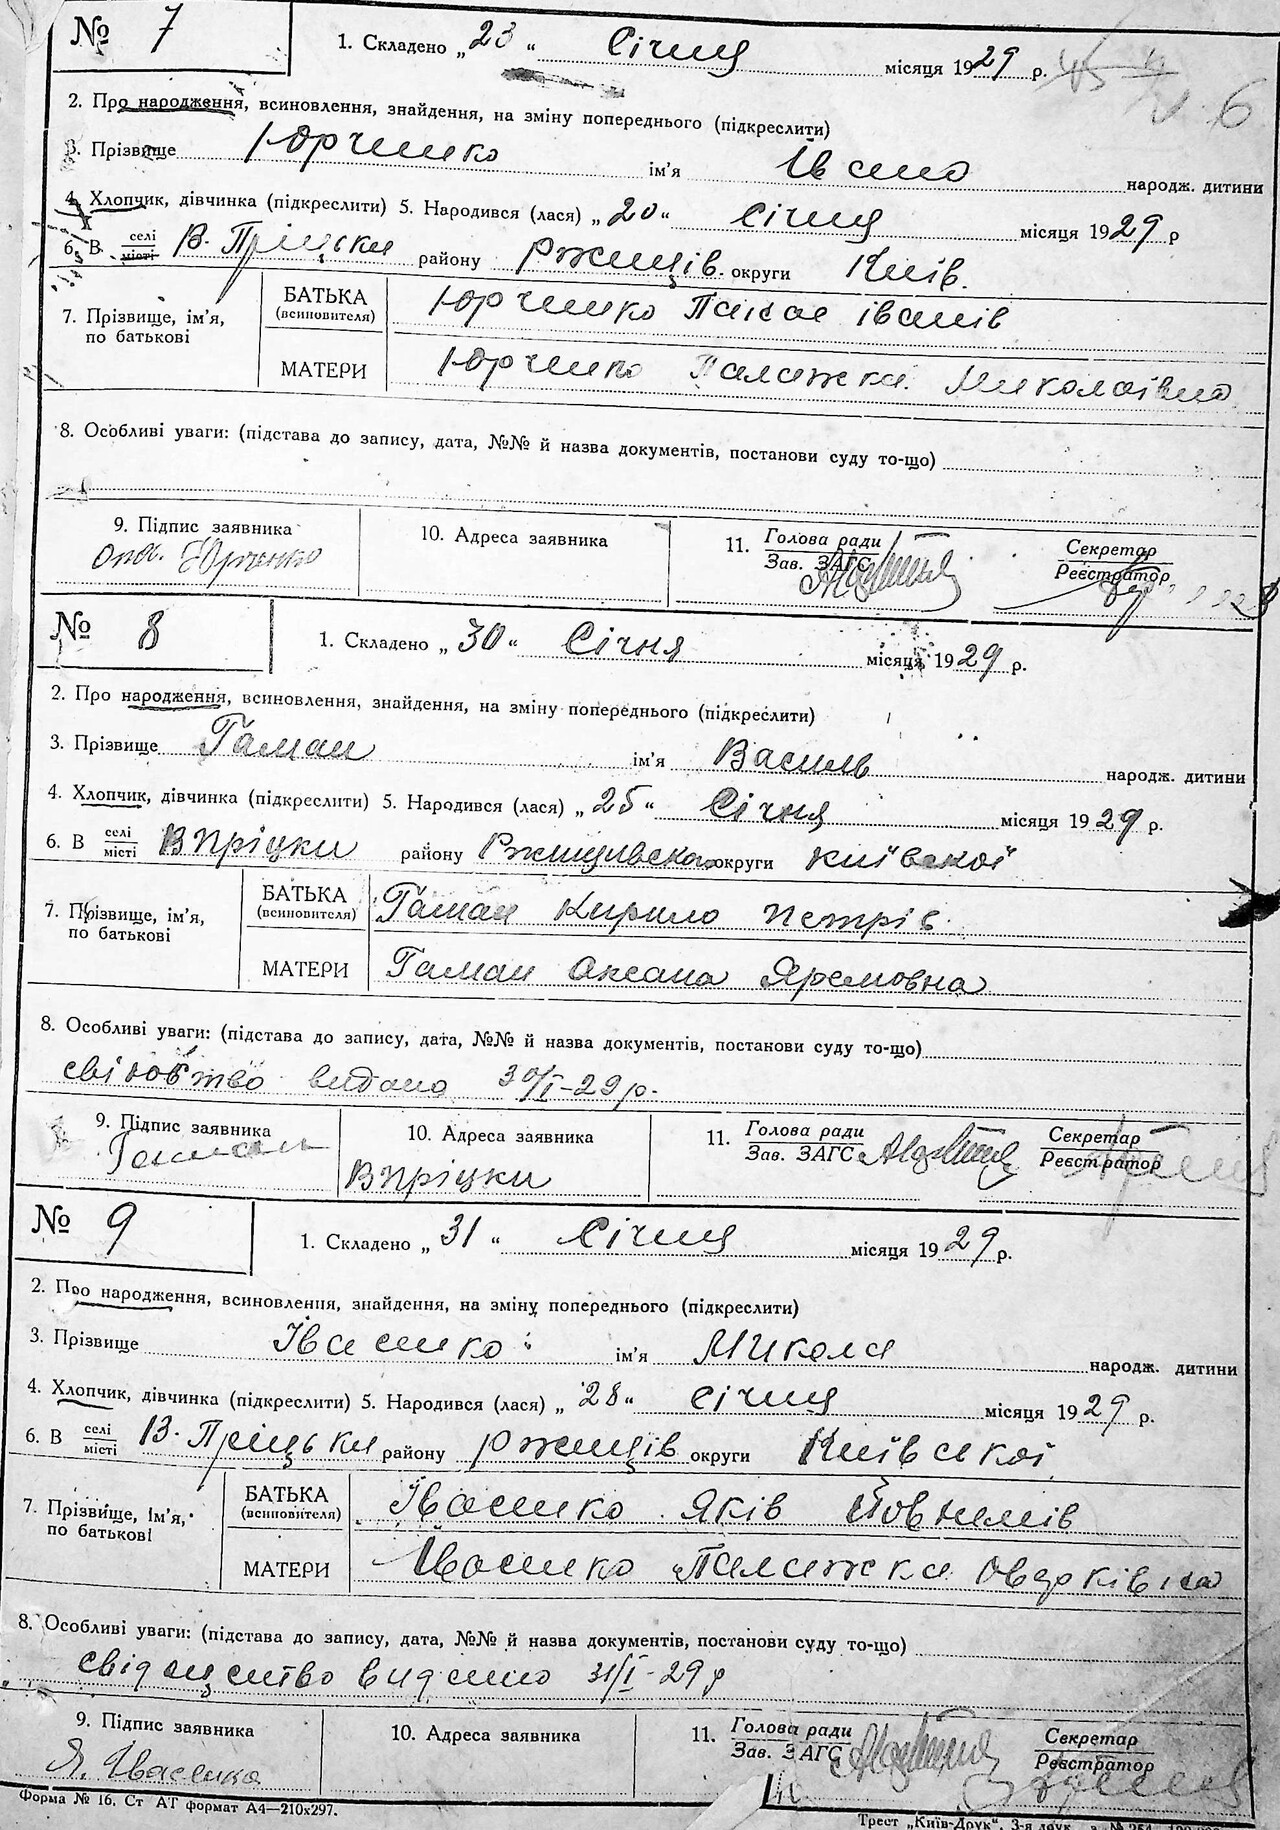 № 7 1. Складено „23“ Січня місяця 1929 р.
6
2. Про народження, всиновлення, знайдення, на зміну попереднього (підкреслити)
3. Прізвище Юрченко ім'я Івано народж. дитини
4. Хлопчик, дівчинка (підкреслити) 5. Народився (лася) „20“ Січня місяця 1929 р
6. В селі місті В. Пріцьки району Ржищів. округи Київ.
7. Прізвище, ім'я, по батькові БАТЬКА (всиновителя) Юрченко Іванів
МАТЕРИ Юрченко Палажка Миколаівна
8. Особливі уваги: (підстава до запису, дата, №№ й назва документів, постанови суду то-що)
9. Підпис заявника 10. Адреса заявника 11. Голова ради Зав. ЗАГС Секретар Реєстратор
Юрченко
№ 8 1. Складено „30“ Січня місяця 1929 р.
2. Про народження, всиновлення, знайдення, на зміну попереднього (підкреслити)
3. Прізвище Гаман ім'я Василь народж. дитини
4. Хлопчик, дівчинка (підкреслити) 5. Народився (лася) „25“ Січня місяця 1929 р.
6. В селі місті В Пріцки району Ржищивского округи київскої
7. Прізвище, ім'я, по батькові БАТЬКА (всиновителя) Гаман Кирило Петрів
МАТЕРИ Гаман Оксана Яремовна
8. Особливі уваги: (підстава до запису, дата, №№ й назва документів, постанови суду то-що)
видано 30/I-29р.
9. Підпис заявника 10. Адреса заявника 11. Голова ради Зав. ЗАГС Секретар Реєстратор
Гаман В Пріцки
№ 9 1. Складено „31“ Січня місяця 1929 р.
2. Про народження, всиновлення, знайдення, на зміну попереднього (підкреслити)
3. Прізвище Іваненко ім'я Микола народж. дитини
4. Хлопчик, дівчинка (підкреслити) 5. Народився (лася) „28“ Січня місяця 1929 р.
6. В селі місті В. Пріцьки району Ржищів округи Київської
7. Прізвище, ім'я, по батькові БАТЬКА (всиновителя) Іваненко Яків
МАТЕРИ Іваненко Палажка Овдоківна
8. Особливі уваги: (підстава до запису, дата, №№ й назва документів, постанови суду то-що)
свідоцство видано 31/I-29р
9. Підпис заявника 10. Адреса заявника 11. Голова ради Зав. ЗАГС Секретар Реєстратор
Я. Іваненко
Форма № 16. Ст АТ формат А4—210х297.
Трест „Київ-Друк“, 3-я друк.